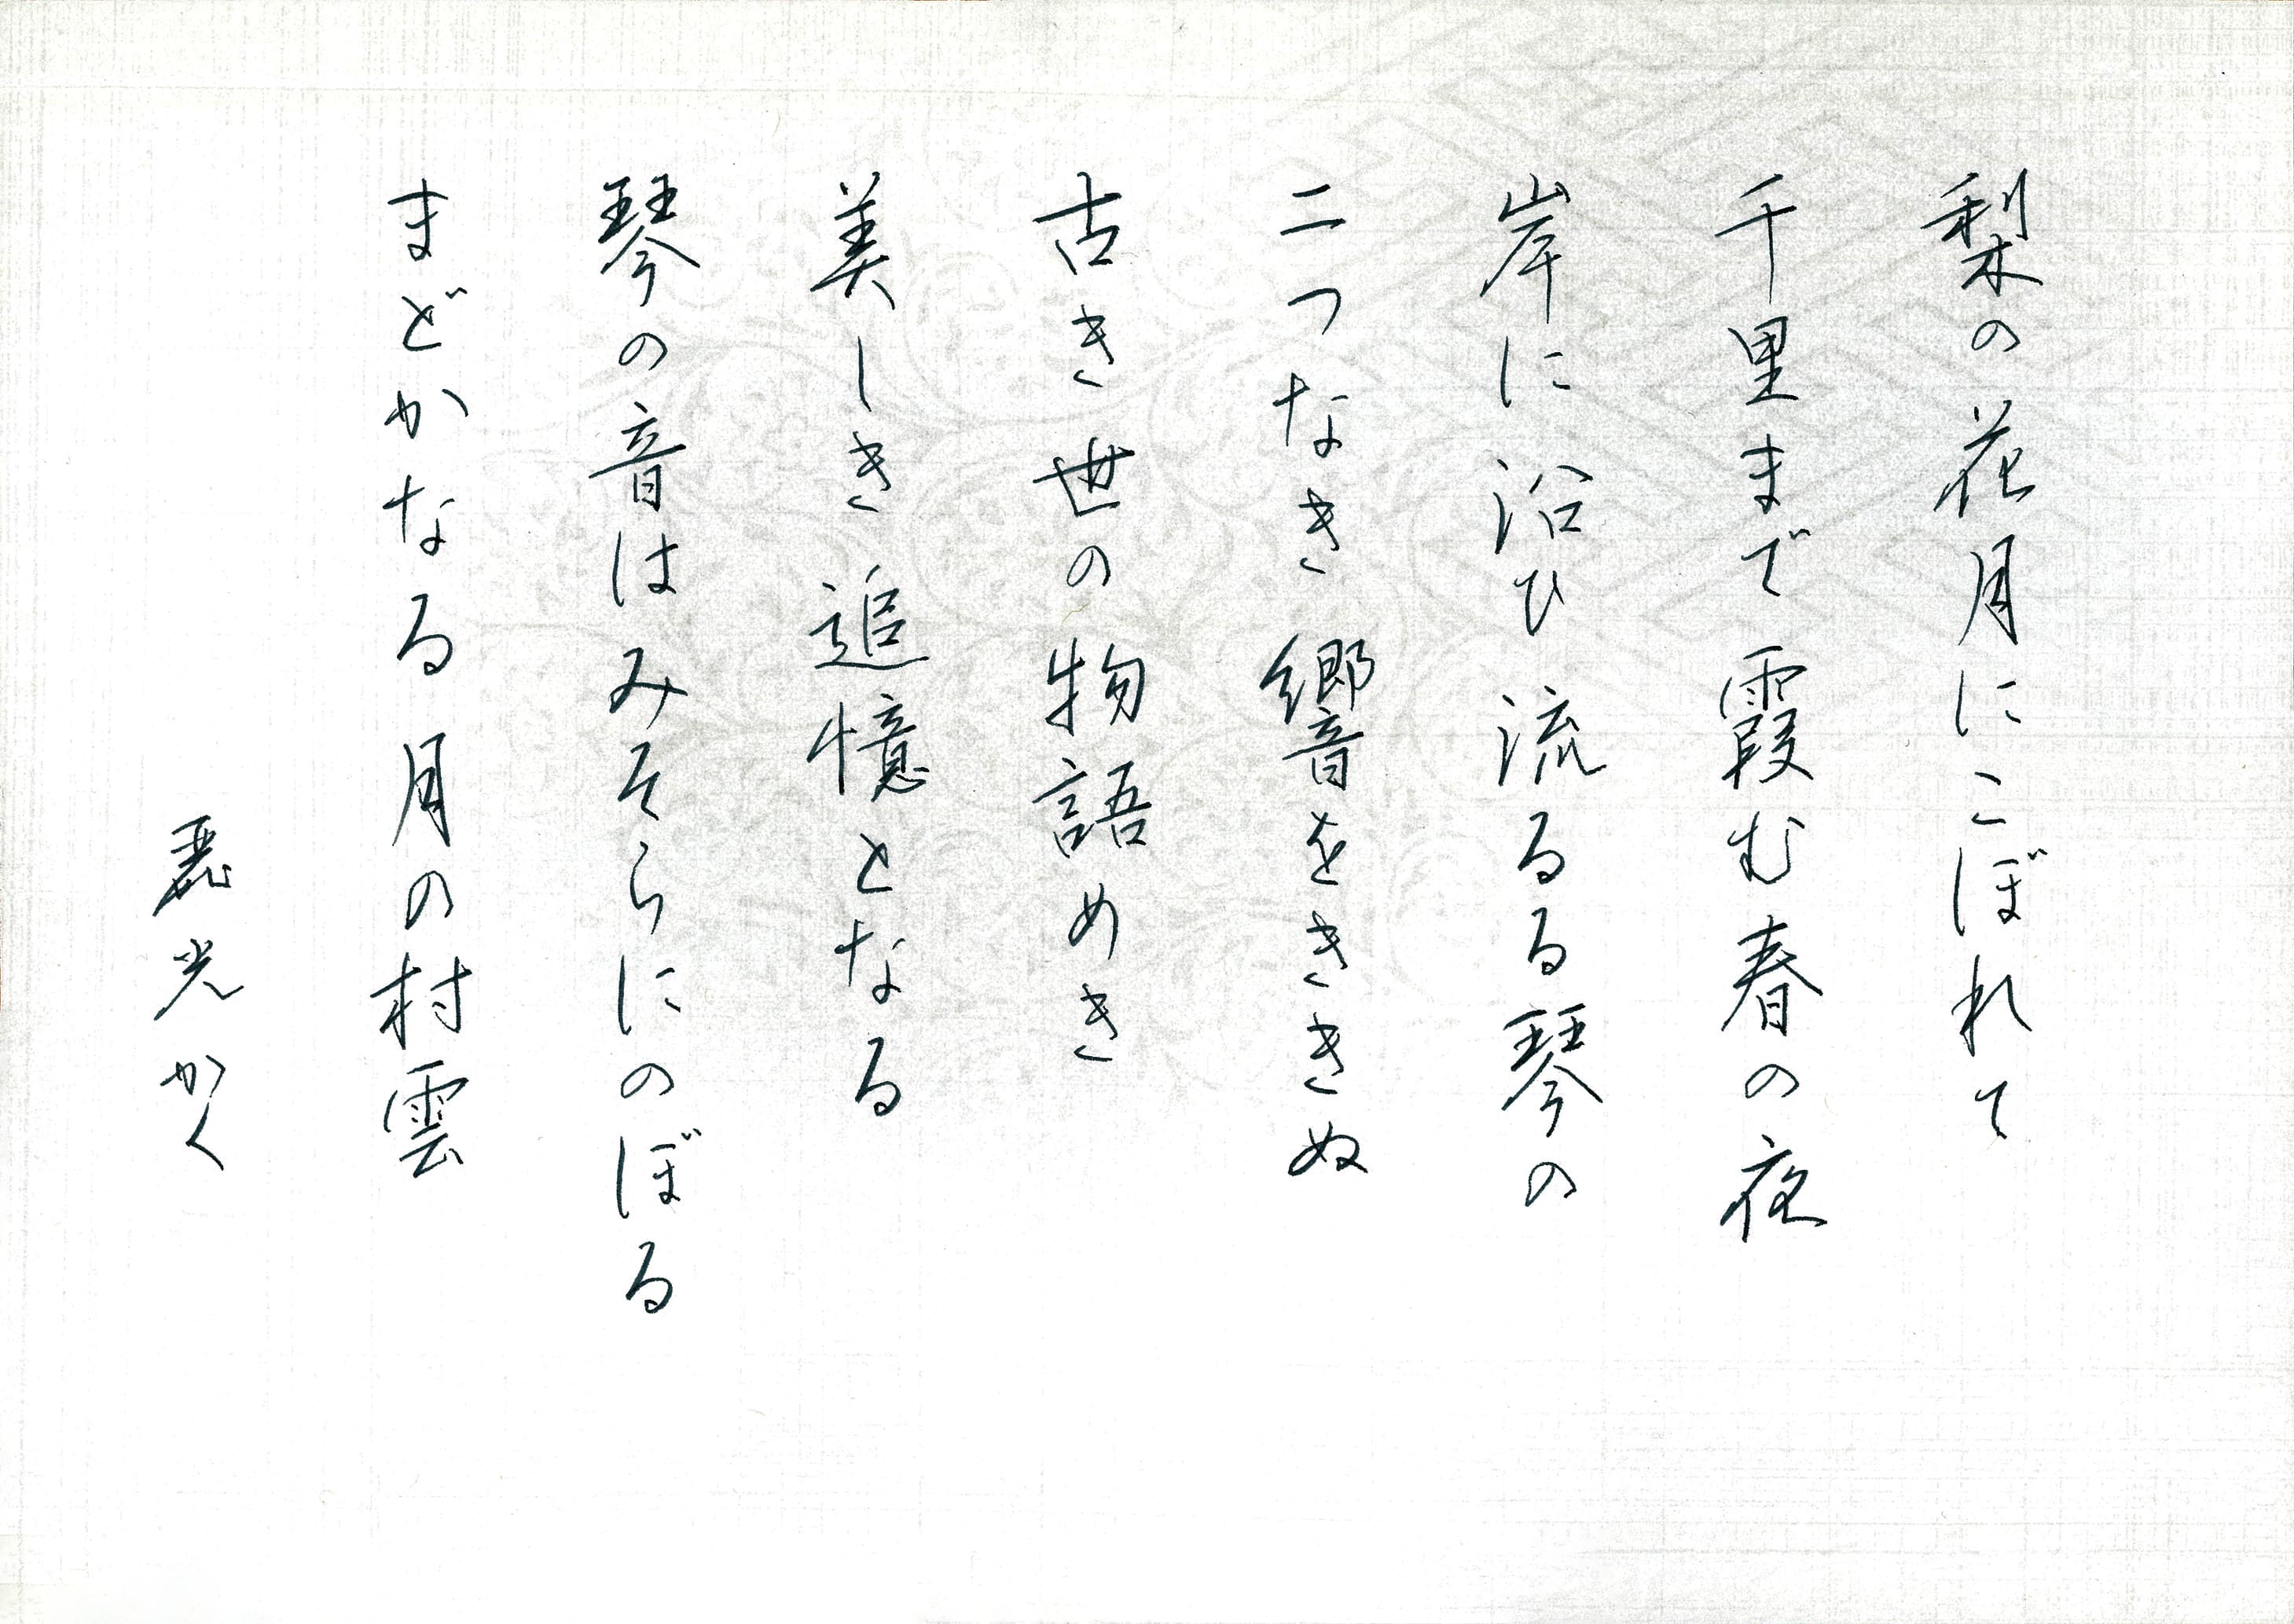 梨の花月にこぼれて
千里まで霞む春の夜
岸に沿ひ流るる琴の
二つなき響をききぬ
古き世の物語めき
美しき追憶となる
琴の音はみそらにのぼる
まどかなる月の村雲
麗光かく